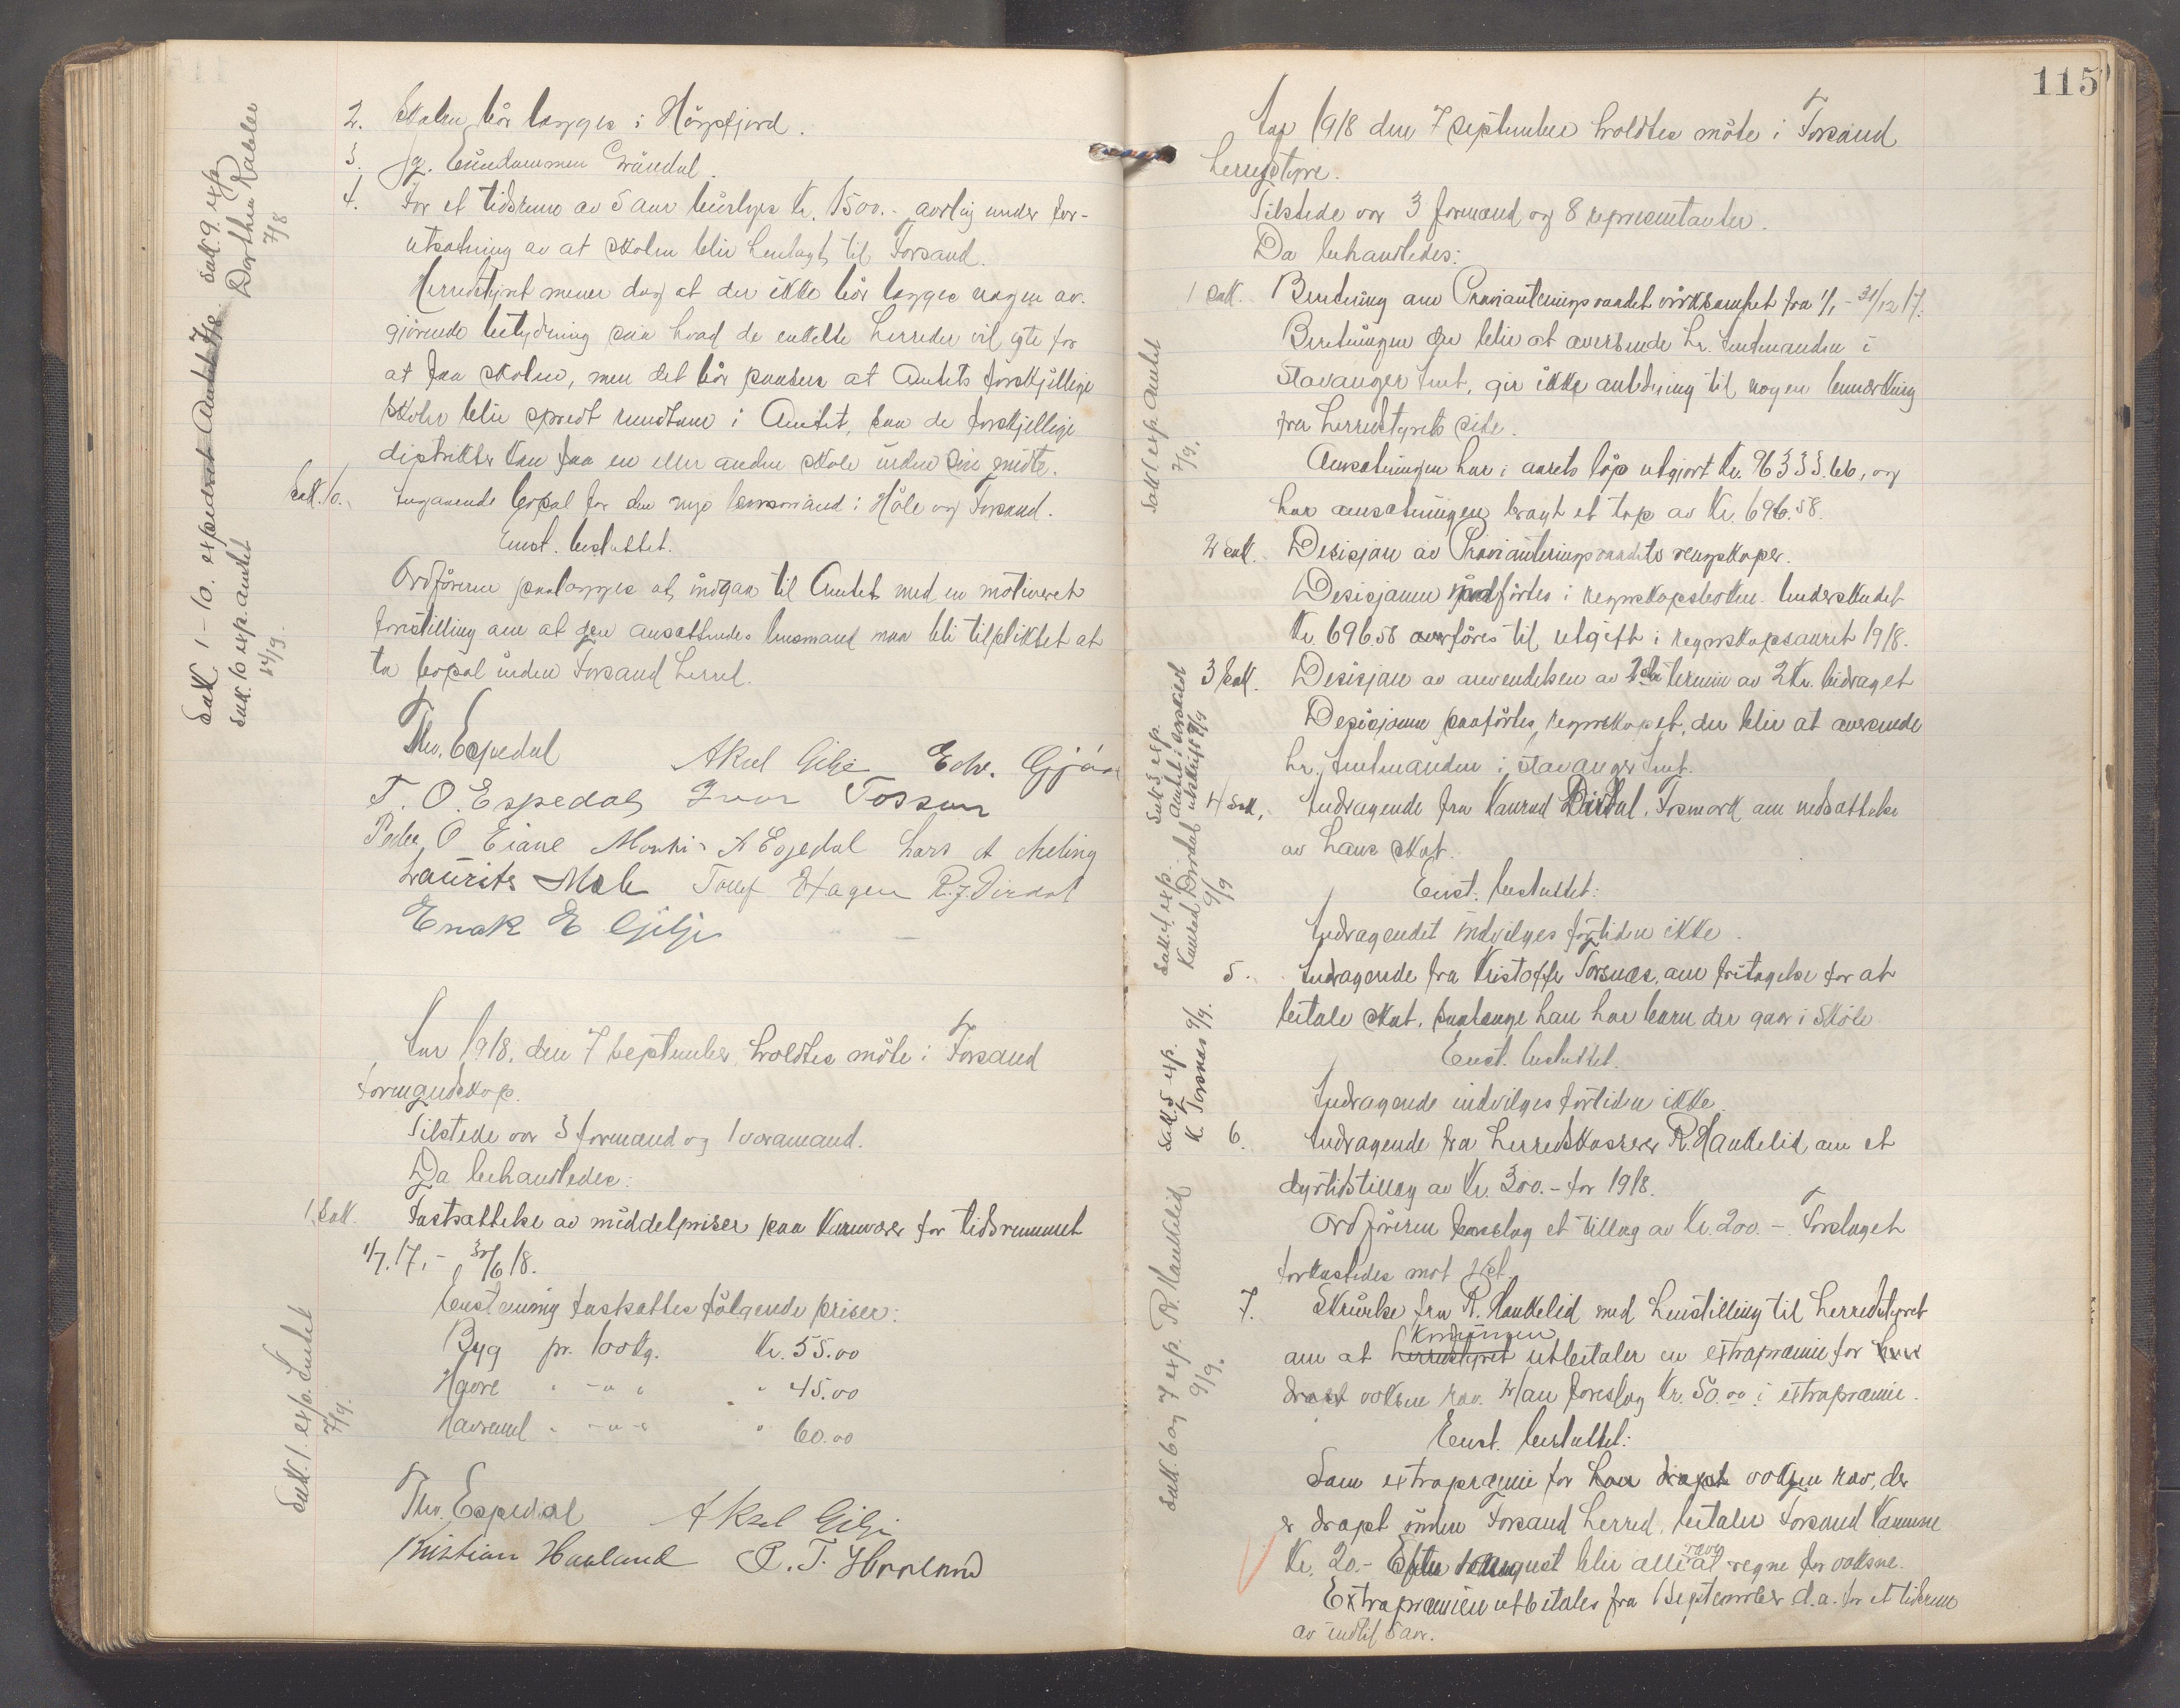 2. Skolen bör lægges i Högsfjord.
3. Jfr. Eiendommen Eräresdal.
4. For et tidsrum av 5 aar bevilges Kr. 1500.- aarlig under for-
utsætning av at skolen blir henlagt til Forsand.
Herredstyret mener dog at der ikke bör lægges nogen av-
gjörende betydning paa hvad de enkelte herreder vil yte for
at faa skolen, men det bör paasees at Amtets forskjellige
skoler blir spredt rundtom i Amtet, saa de forskjellige
distrikter kan faa en eller anden skole inden sin midte.
Sak. 10. Angaaende bopal for den nye lensmand i Höle og Forsand.
Enst. besluttet.
Ordföreren paalægges at indgaa til Amtet med en motiveret
forestilling om at den ansættendes lensmand maa bli tilpliktet at
ta bopal inden Forsand herred.
Tho. Espedal Aksel Gilje Edv. Gjöse
T. O. Espedal Ivar Fossan
Peder O Eiane Montin A Espedal Lars A Meling
Laurits Mele Tollef Hagen R. J. Dirdal
Enok E Gilje
Sak 1 - 10. expederet Amtet 7/8. Sak. 9. exp.
Dorthea Rabble
7/8
Sak. 10 exp. amtet
14/9.
Aar 1918, den 7 september holdtes möte i Forsand
formandskap.
Tilstede var 3 formænd og 1 varamand.
Da behandledes:
1. Sak. Fastsættelse av middelpriser paa kornvarer for tidsrummet
1/7. 17. - 30/6 18.
Enstemmig fastsattes fölgende priser:
Byg pr. 100 kg. Kr. 55.00
Havre " - " - " " 45.00
Havremel " - " - " " 60.00
Tho. Espedal Aksel Gilje
Kristian Haaland P. T. Haaland
Sak. 1. exp. Amtet
7/9.
115
Aar 1918 den 7 september holdtes möte i Forsand
herredstyre.
Tilstede var 3 formænd og 8 representanter.
Da behandledes:
1 Sak. Beretning om Provianteringsraadet virksomhet fra 1/1 - 31/12 17.
Beretningen der blir at oversende Hr. Amtmanden i
Stavanger Amt, gir ikke anledning til nogen bemerkning
fra herredstyrets side.
Omsætningen har i aarets löp utgjort Kr. 96333.66, og
har omsætningen bragt et tap av Kr. 696.58.
2 Sak. Desisjon av Provianteringsraadets regnskaper.
Desisjonen paaförtes i regnskapsboken. Underskudet
Kr. 696.58 overföres til utgift i regnskapsaaret 1918.
3 Sak. Desisjon av anvendelsen av 2den termin av 2 Kr. bidraget
Desisjonen paaförtes regnskapet, der blir at oversende
hr. Amtmanden i Stavanger Amt.
4 Sak. Andragende fra Konrad Dirdal, Fosmark om nedsættelse
av hans skat.
Enst. besluttet:
Andragendet indvilges fortiden ikke.
5. Andragende fra Kristoffer Forsnæs, om fritagelse for at
betale skat, saalænge han har barn der gaar i skole.
Enst. besluttet.
Andragende indvilges fortiden ikke.
6. Andragende fra herredskasserer R. Haukelid om et
dyrtidstillæg av Kr. 300.- for 1918.
Ordföreren foreslog et tillæg av Kr. 200.-. Forslaget
forkastedes mot 1 st.
7. Skrivelse fra R. Haukelid med henstilling til herredstyret
kommunen
om at herredstyret utbetaler en extrapræmie for hver
dræpt voksne rav. Man foreslog Kr. 50.00 i extrapræmie.
Enst. besluttet:
Som extrapræmie for hver dræpt voksen rav, der
er dræpt inden Forsand herred, betaler Forsand Kommune
Kr. 20.- Efter 1 August blir alle ræve at regne for voksne.
Extrapræmien utbetales fra 1 September d.a. for et tidsrum
av indtil 5 aar.
Sak 1 exp. Amtet
7/9.
Sak 3 exp.
Amtet i særskilt utskrift 9/9
Sak. 4. exp.
Konrad Dirdal
9/9
Sak. 5 exp.
K. Forsnæs 9/9.
Sak. 6 og 7 exp. R. Haukelid
9/9.